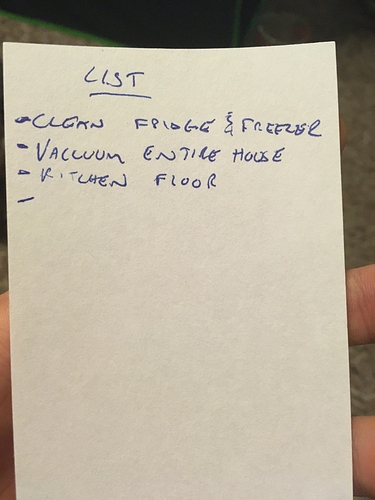 LIST
- CLEAN FRIDGE & FREEZER
- VACCUUM ENTIRE HOUSE
- KITCHEN FLOOR
-